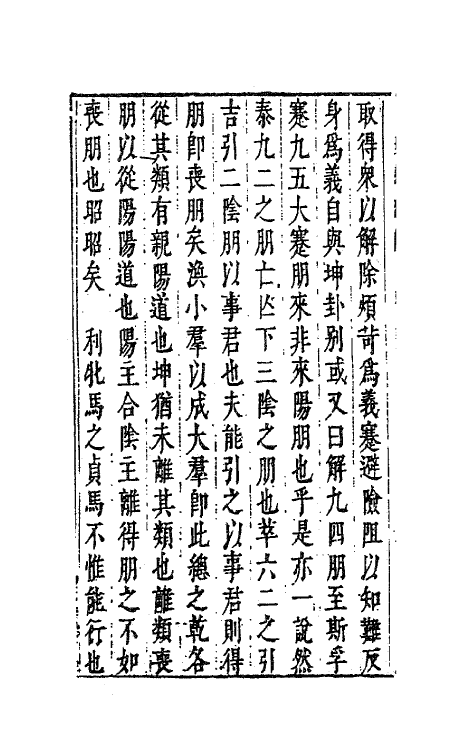 取得衆以解除煩苛爲義蹇避險阻以知難反
身爲義自與坤卦别或又曰解九四朋至斯孚
蹇九五大蹇朋來非來陽朋也乎是亦一說然
泰九二之朋亡亾下三陰之朋也萃六二之引
吉引二陰朋以事君也夫能引之以事君則得
朋卽喪朋矣渙小羣以成大羣卽此總之乾各
從其類有親陽道也坤猶未離其類也離類喪
朋以從陽陽道也陽主合陰主離得朋之不如
喪朋也昭昭矣　利牝馬之貞馬不惟能行也